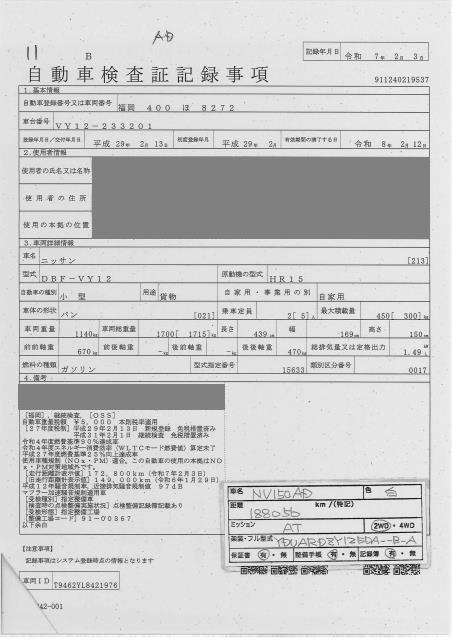 AD
11
B
記録年月日 令和 7年 2月 3日
自動車検査証記録事項
911240219537
1.基本情報
自動車登録番号又は車両番号 福岡 400 ほ 8272
車台番号 VY12-233201
登録年月日/交付年月日 平成 29年 2月 13日 初度登録年月 平成 29年 2月 有効期間の満了する日 令和 8年 2月 12日
2.使用者情報
使用者の氏名又は名称
使用者の住所
使用の本拠の位置
3.車両詳細情報
車名 ニッサン [213]
型式 DBF-VY12 原動機の型式 HR15
自動車の種別 小型 用途 貨物 自家用・事業用の別 自家用
車体の形状 バン [021] 乗車定員 2[ 5]人 最大積載量 450[ 300]kg
車両重量 1140kg 車両総重量 1700[ 1715]kg 長さ 439cm 幅 169cm 高さ 150cm
前前軸重 670kg 前後軸重 -kg 後前軸重 -kg 後後軸重 470kg 総排気量又は定格出力 1.49 kW L
燃料の種類 ガソリン 型式指定番号 15633 類別区分番号 0017
4.備考
[福岡],継続検査,[OSS]
自動車重量税額 ¥5,000 本則税率適用
[27年度税制]平成29年2月13日 新規登録 免税措置済み
平成31年2月1日 継続検査 免税措置済み
令和4年度燃費基準90%達成車
令和4年度エネルギー消費効率(WLTCモード燃費値)算定未了
平成27年度燃費基準25%向上達成車
使用車種規制(NOx・PM)適合,この自動車の使用の本拠はNO
x・PM対策地域外です。
[走行距離計表示値]172,800km(令和7年2月3日)
[旧走行距離計表示値]149,000km(令和6年1月29日)
平成12年騒音規制車,近接排気騒音規制値 97dB
マフラー加速騒音規制適用車
[受検種別]指定整備車
[検査時の点検整備実施状況]点検整備記録簿記載あり
[受検形態]指定整備工場
[整備工場コード]91-00367
以下余白
車名 NV150AD 色 白
距離 188056 km/(特記)
ミッション AT 2WD・4WD
架装・フル型式
保証書 有・無 整備手帳 有・無 記録簿 有・無
【注意事項】
記録事項はシステム登録時点の情報となります
車両ID T9462YL8421976
42-001